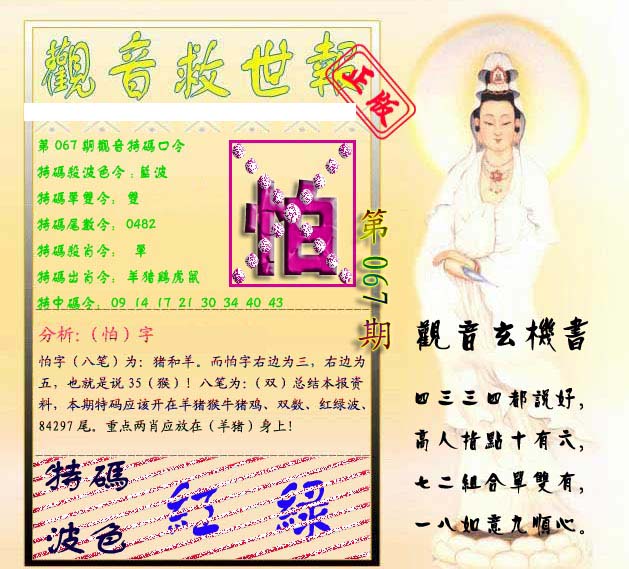 觀音救世報
正版
第067期觀音特碼口令
特碼殺波色令:藍波
特碼單雙令: 雙
特碼尾數令: 0482
特碼殺肖令: 單
特碼出肖令: 羊猪鷄虎鼠
特中碼令: 09 14 17 21 30 34 40 43
怕
第067期
分析:(怕)字
怕字(八笔)为:猪和羊。而怕字右边为三,右边为
五,也就是说35(猴)!八笔为:(双)总结本报资
料,本期特码应该开在羊猪猴牛猪鸡、双数、红绿波、
84297尾。重点两肖应放在(羊猪)身上!
特碼
波色
紅 綠
觀音玄機書
四三三四都說好,
高人指點十有六,
七二組合單雙有,
一八如意九順心。